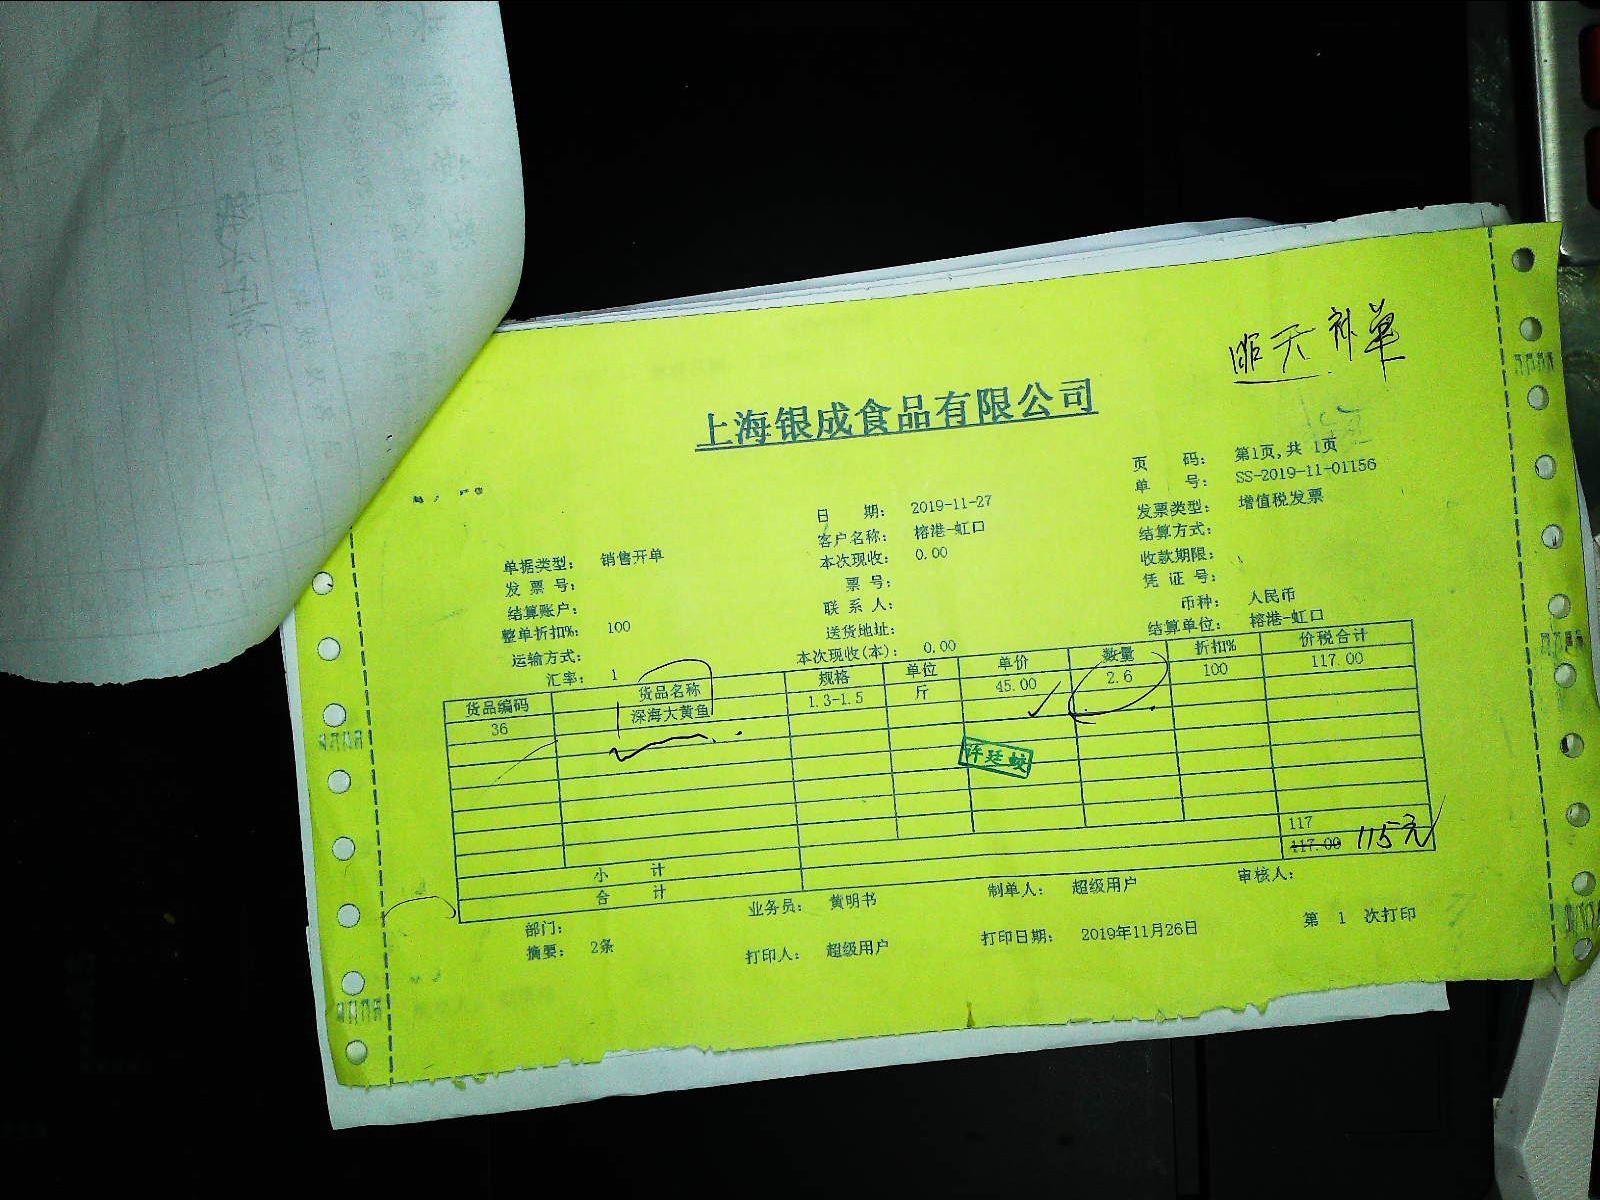 昨天补单
上海银成食品有限公司
页 码： 第1页,共 1页
单 号： SS-2019-11-01156
日 期： 2019-11-27
发票类型： 增值税发票
客户名称： 榕港-虹口
结算方式：
单据类型： 销售开单
本次现收： 0.00
收款期限：
发 票 号：
票 号：
凭 证 号：
结算账户：
联 系 人：
币种： 人民币
整单折扣%： 100
送货地址：
结算单位： 榕港-虹口
运输方式：
本次现收(本)： 0.00
汇率： 1
货品编码 货品名称 规格 单位 单价 数量 折扣% 价税合计
36 深海大黄鱼 1.3-1.5 斤 45.00 2.6 100 117.00
小 计 117
合 计 117.00 115元
部门： 业务员： 黄明书 制单人： 超级用户 审核人：
摘要： 2条 打印人： 超级用户 打印日期： 2019年11月26日 第 1 次打印